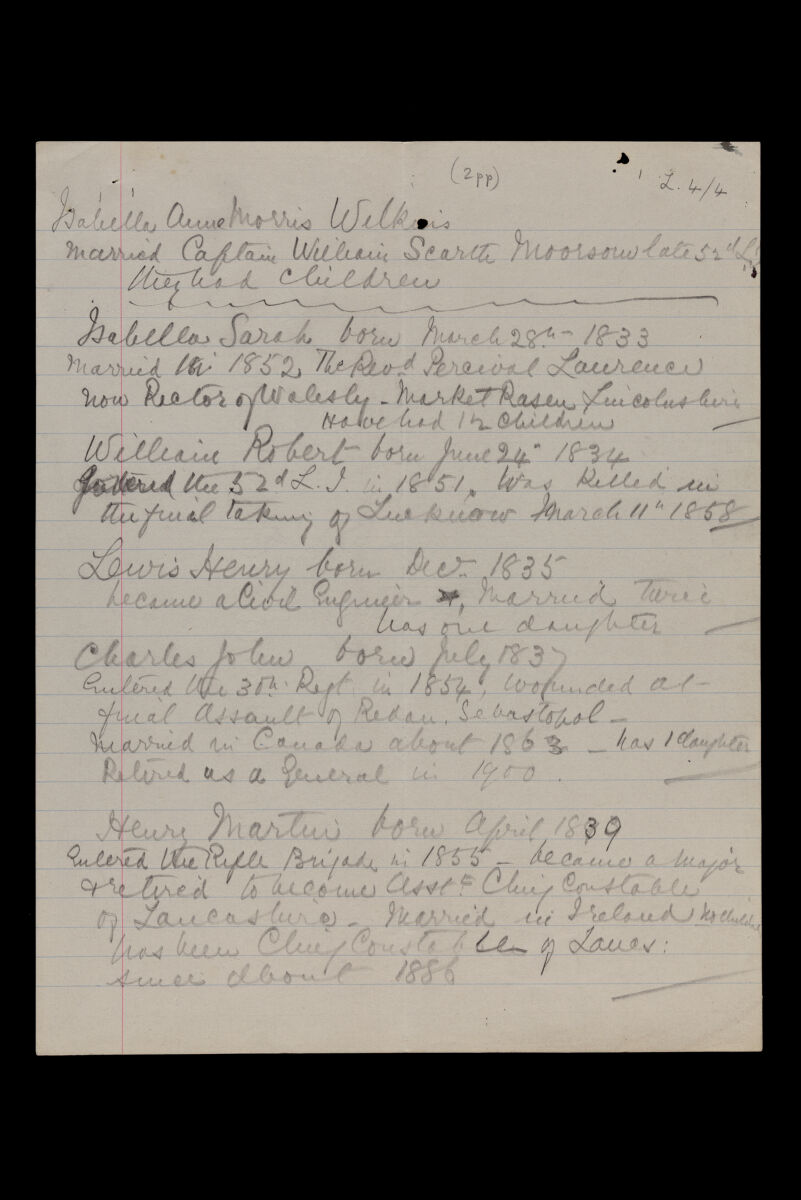 (2pp)
L. 4/4
Isabella Anne Morris Wilkins
married Captain William Scarth Moorsom late 52d L.I.
they had children
Isabella Sarah born March 28th 1833
Married in 1852 The Revd Percival Laurence
now Rector of Walesby - Market Rasen Lincolnshire
Have had 12 children
William Robert born June 24th 1834
Entered the 52d L. I. in 1851. Was killed in
the final taking of Lucknow March 11th 1858
Lewis Henry born Decr 1835
became a Civil Engineer, Married twice
has one daughter
Charles John born July 1837
Entered the 30th Regt in 1854, wounded at
final Assault of Redan, Sevastopol -
Married in Canada about 1863 - has 1 daughter
Retired as a General in 1900.
Henry Martin born April 1839
Entered the Rifle Brigade in 1855 - became a Major
& retired to become Asst Chief Constable
of Lancashire - Married in Ireland No children
has been Chief Constable of Lancs:
since about 1886